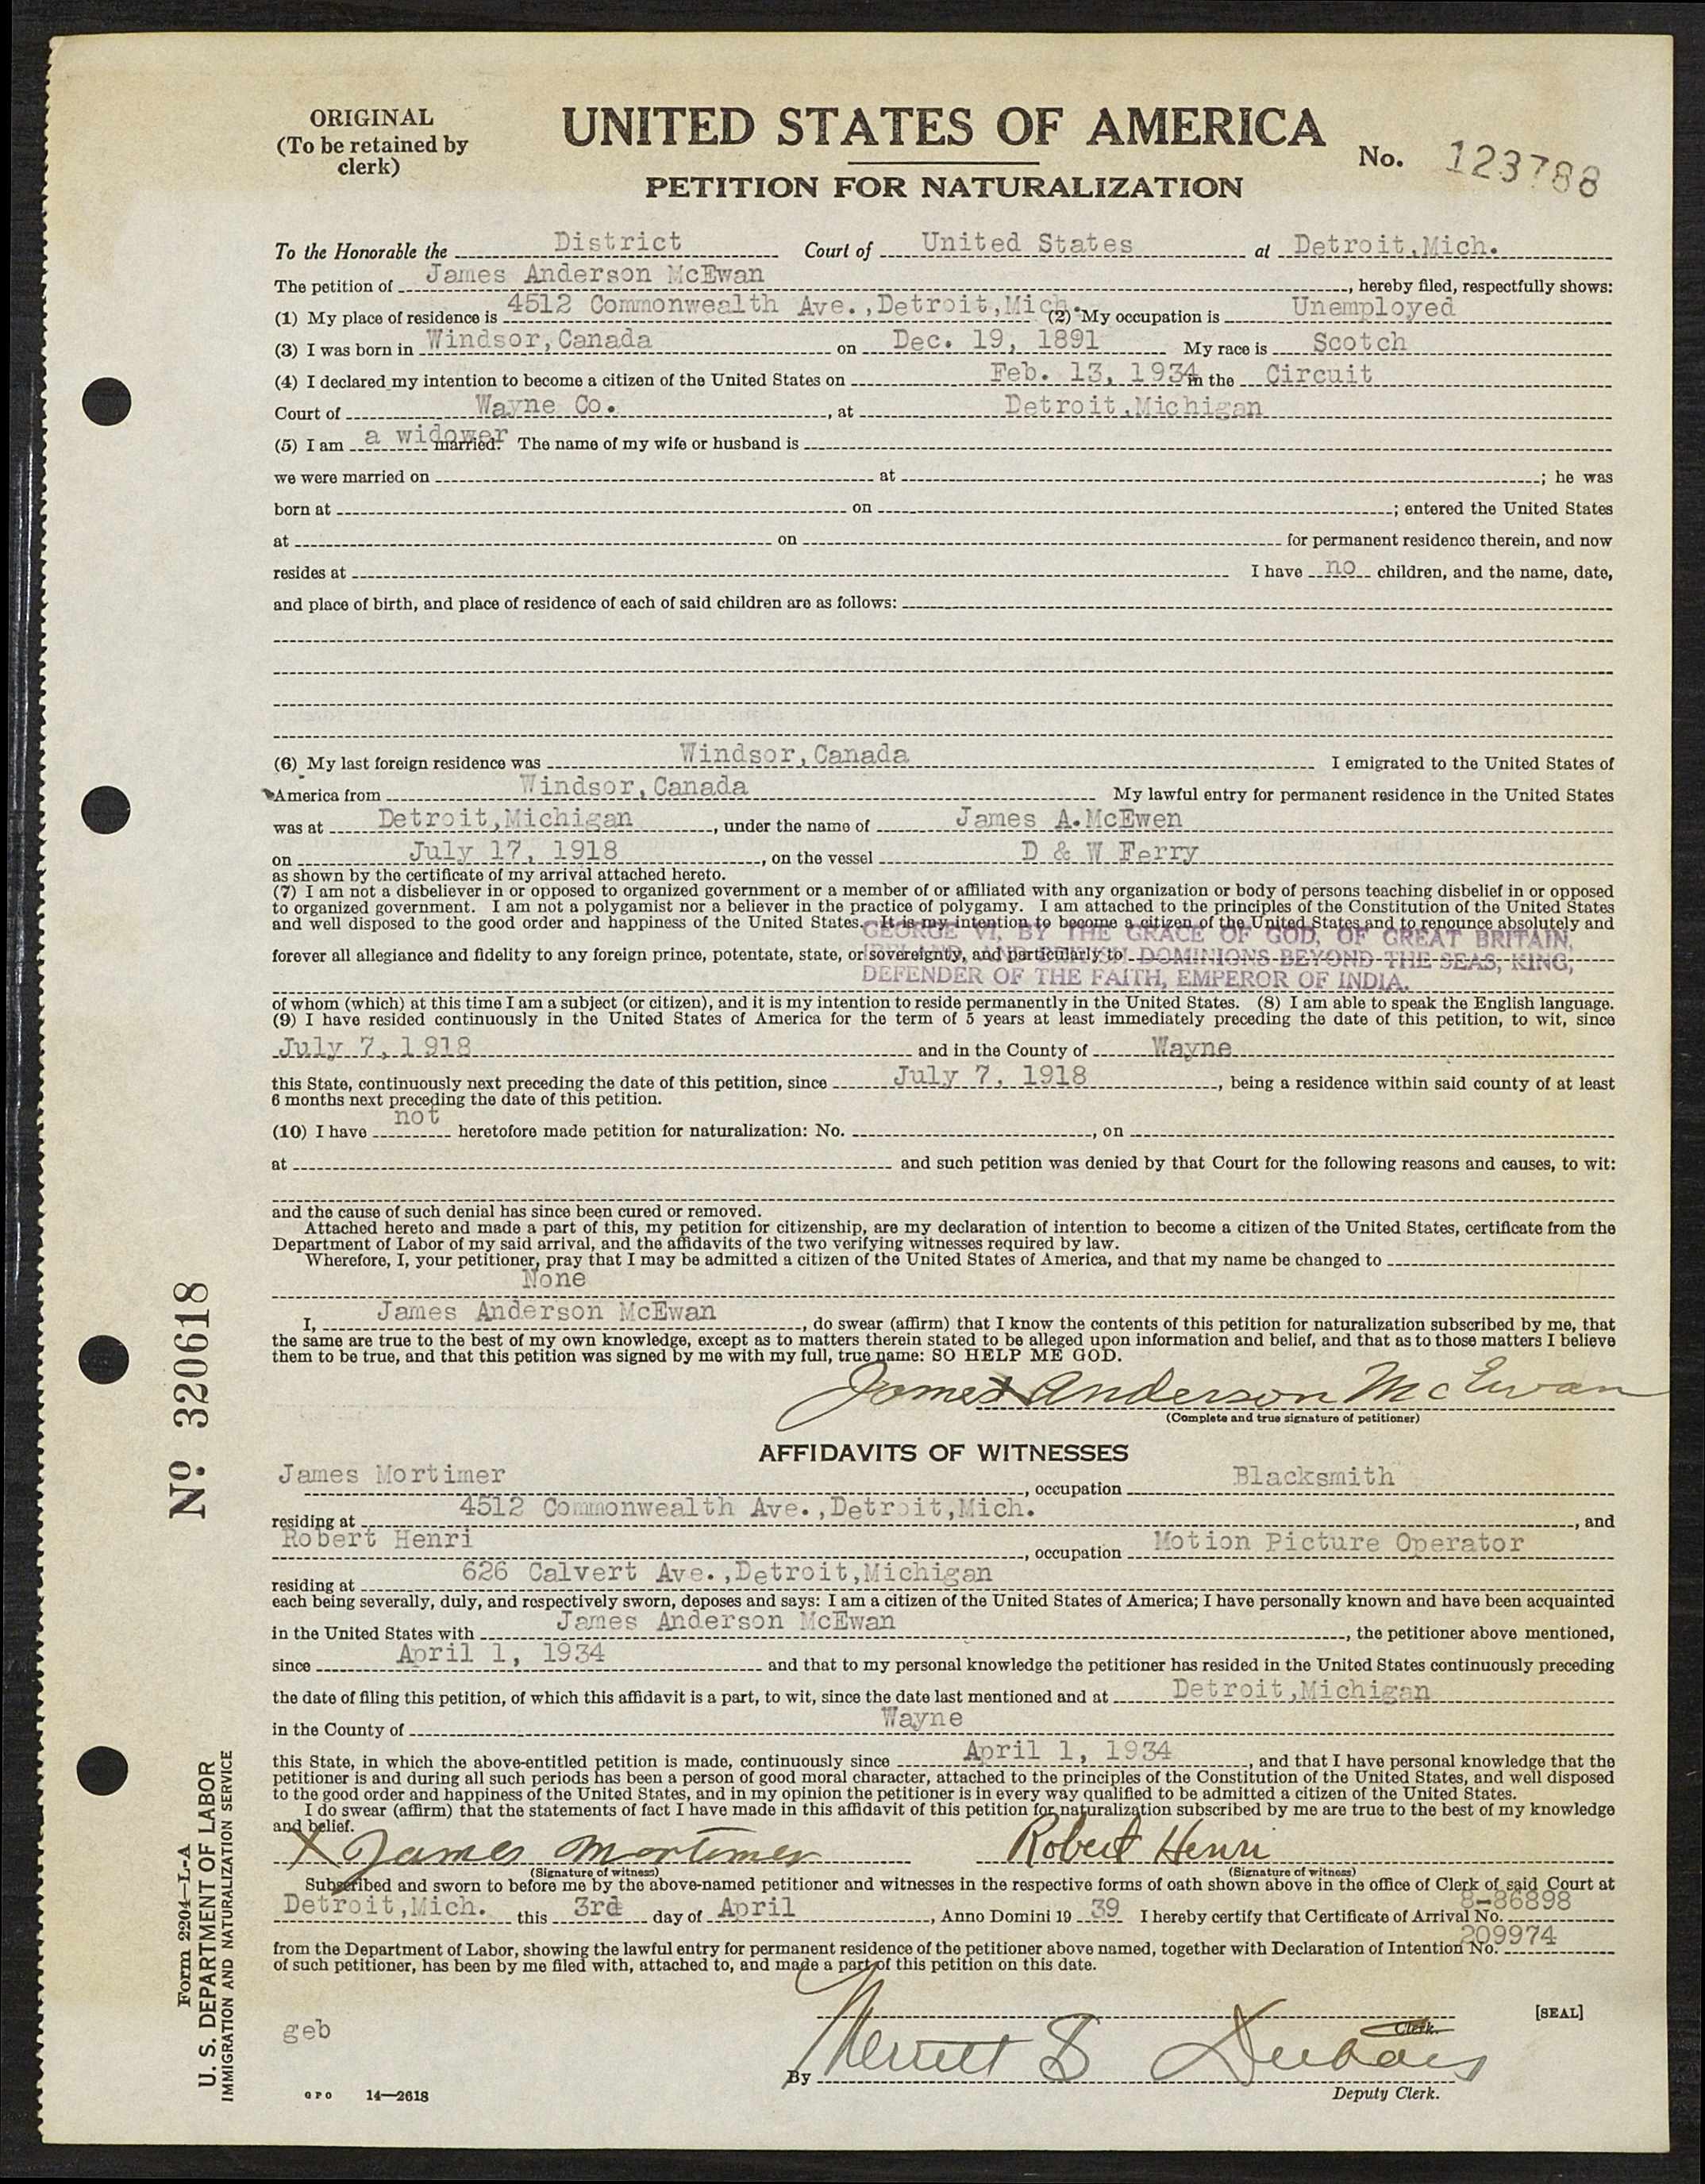 ORIGINAL
(To be retained by
clerk)
UNITED STATES OF AMERICA
No. 123788
PETITION FOR NATURALIZATION
To the Honorable the District Court of United States at Detroit,Mich.
The petition of James Anderson McEwan, hereby filed, respectfully shows:
(1) My place of residence is 4512 Commonwealth Ave.,Detroit,Mich. (2) My occupation is Unemployed
(3) I was born in Windsor,Canada on Dec. 19, 1891 My race is Scotch
(4) I declared my intention to become a citizen of the United States on Feb. 13, 1934 in the Circuit
Court of Wayne Co., at Detroit,Michigan
(5) I am a widower married. The name of my wife or husband is
we were married on at ; he was
born at on ; entered the United States
at on for permanent residence therein, and now
resides at I have no children, and the name, date,
and place of birth, and place of residence of each of said children are as follows:
(6) My last foreign residence was Windsor,Canada I emigrated to the United States of
America from Windsor,Canada My lawful entry for permanent residence in the United States
was at Detroit,Michigan, under the name of James A.McEwen
on July 17, 1918, on the vessel D & W Ferry
as shown by the certificate of my arrival attached hereto.
(7) I am not a disbeliever in or opposed to organized government or a member of or affiliated with any organization or body of persons teaching disbelief in or opposed
to organized government. I am not a polygamist nor a believer in the practice of polygamy. I am attached to the principles of the Constitution of the United States
and well disposed to the good order and happiness of the United States. It is my intention to become a citizen of the United States and to renounce absolutely and
GEORGE VI, BY THE GRACE OF GOD, OF GREAT BRITAIN,
forever all allegiance and fidelity to any foreign prince, potentate, state, or sovereignty, and particularly to
IRELAND AND BRITISH DOMINIONS BEYOND THE SEAS, KING,
DEFENDER OF THE FAITH, EMPEROR OF INDIA.
of whom (which) at this time I am a subject (or citizen), and it is my intention to reside permanently in the United States. (8) I am able to speak the English language.
(9) I have resided continuously in the United States of America for the term of 5 years at least immediately preceding the date of this petition, to wit, since
July 7, 1918 and in the County of Wayne
this State, continuously next preceding the date of this petition, since July 7, 1918, being a residence within said county of at least
6 months next preceding the date of this petition.
(10) I have not heretofore made petition for naturalization: No. , on
at and such petition was denied by that Court for the following reasons and causes, to wit:
and the cause of such denial has since been cured or removed.
Attached hereto and made a part of this, my petition for citizenship, are my declaration of intention to become a citizen of the United States, certificate from the
Department of Labor of my said arrival, and the affidavits of the two verifying witnesses required by law.
Wherefore, I, your petitioner, pray that I may be admitted a citizen of the United States of America, and that my name be changed to
None
I, James Anderson McEwan, do swear (affirm) that I know the contents of this petition for naturalization subscribed by me, that
the same are true to the best of my own knowledge, except as to matters therein stated to be alleged upon information and belief, and that as to those matters I believe
them to be true, and that this petition was signed by me with my full, true name: SO HELP ME GOD.
James Anderson McEwan
(Complete and true signature of petitioner)
AFFIDAVITS OF WITNESSES
James Mortimer, occupation Blacksmith
residing at 4512 Commonwealth Ave.,Detroit,Mich., and
Robert Henri, occupation Motion Picture Operator
residing at 626 Calvert Ave.,Detroit,Michigan
each being severally, duly, and respectively sworn, deposes and says: I am a citizen of the United States of America; I have personally known and have been acquainted
in the United States with James Anderson McEwan, the petitioner above mentioned,
since April 1, 1934 and that to my personal knowledge the petitioner has resided in the United States continuously preceding
the date of filing this petition, of which this affidavit is a part, to wit, since the date last mentioned and at Detroit,Michigan
in the County of Wayne
this State, in which the above-entitled petition is made, continuously since April 1, 1934, and that I have personal knowledge that the
petitioner is and during all such periods has been a person of good moral character, attached to the principles of the Constitution of the United States, and well disposed
to the good order and happiness of the United States, and in my opinion the petitioner is in every way qualified to be admitted a citizen of the United States.
I do swear (affirm) that the statements of fact I have made in this affidavit of this petition for naturalization subscribed by me are true to the best of my knowledge
and belief.
X James Mortimer Robert Henri
(Signature of witness) (Signature of witness)
Subscribed and sworn to before me by the above-named petitioner and witnesses in the respective forms of oath shown above in the office of Clerk of said Court at
Detroit,Mich. this 3rd day of April, Anno Domini 19 39 I hereby certify that Certificate of Arrival No. 8-86898
from the Department of Labor, showing the lawful entry for permanent residence of the petitioner above named, together with Declaration of Intention No. 209974
of such petitioner, has been by me filed with, attached to, and made a part of this petition on this date.
[SEAL]
Clerk.
geb
By Merritt Dubois
Deputy Clerk.
GPO 14—2618
No. 320618
Form 2204—L-A
U. S. DEPARTMENT OF LABOR
IMMIGRATION AND NATURALIZATION SERVICE